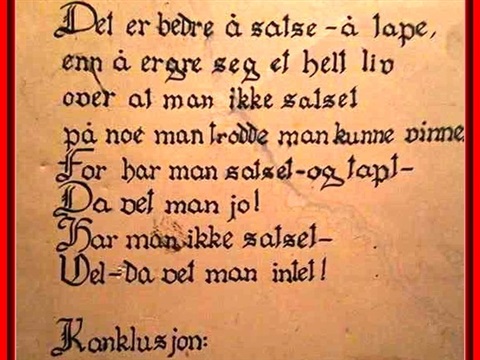 Det er bedre å satse - å tape,
enn å ergre seg et helt liv
over at man ikke satset
på noe man trodde man kunne vinne.
For har man satset-og tapt-
Da vet man jo!
Har man ikke satset-
Vel-da vet man intet!
Konklusjon: